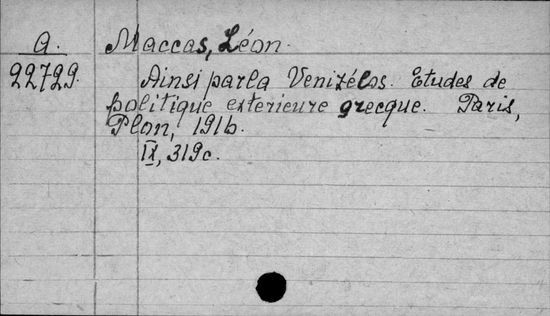 A. Maccas, Léon.
22729. Ainsi parla Venizélos. Etudes de
politique exterieure grecque. Paris,
Plon, 1916.
IX, 319c.